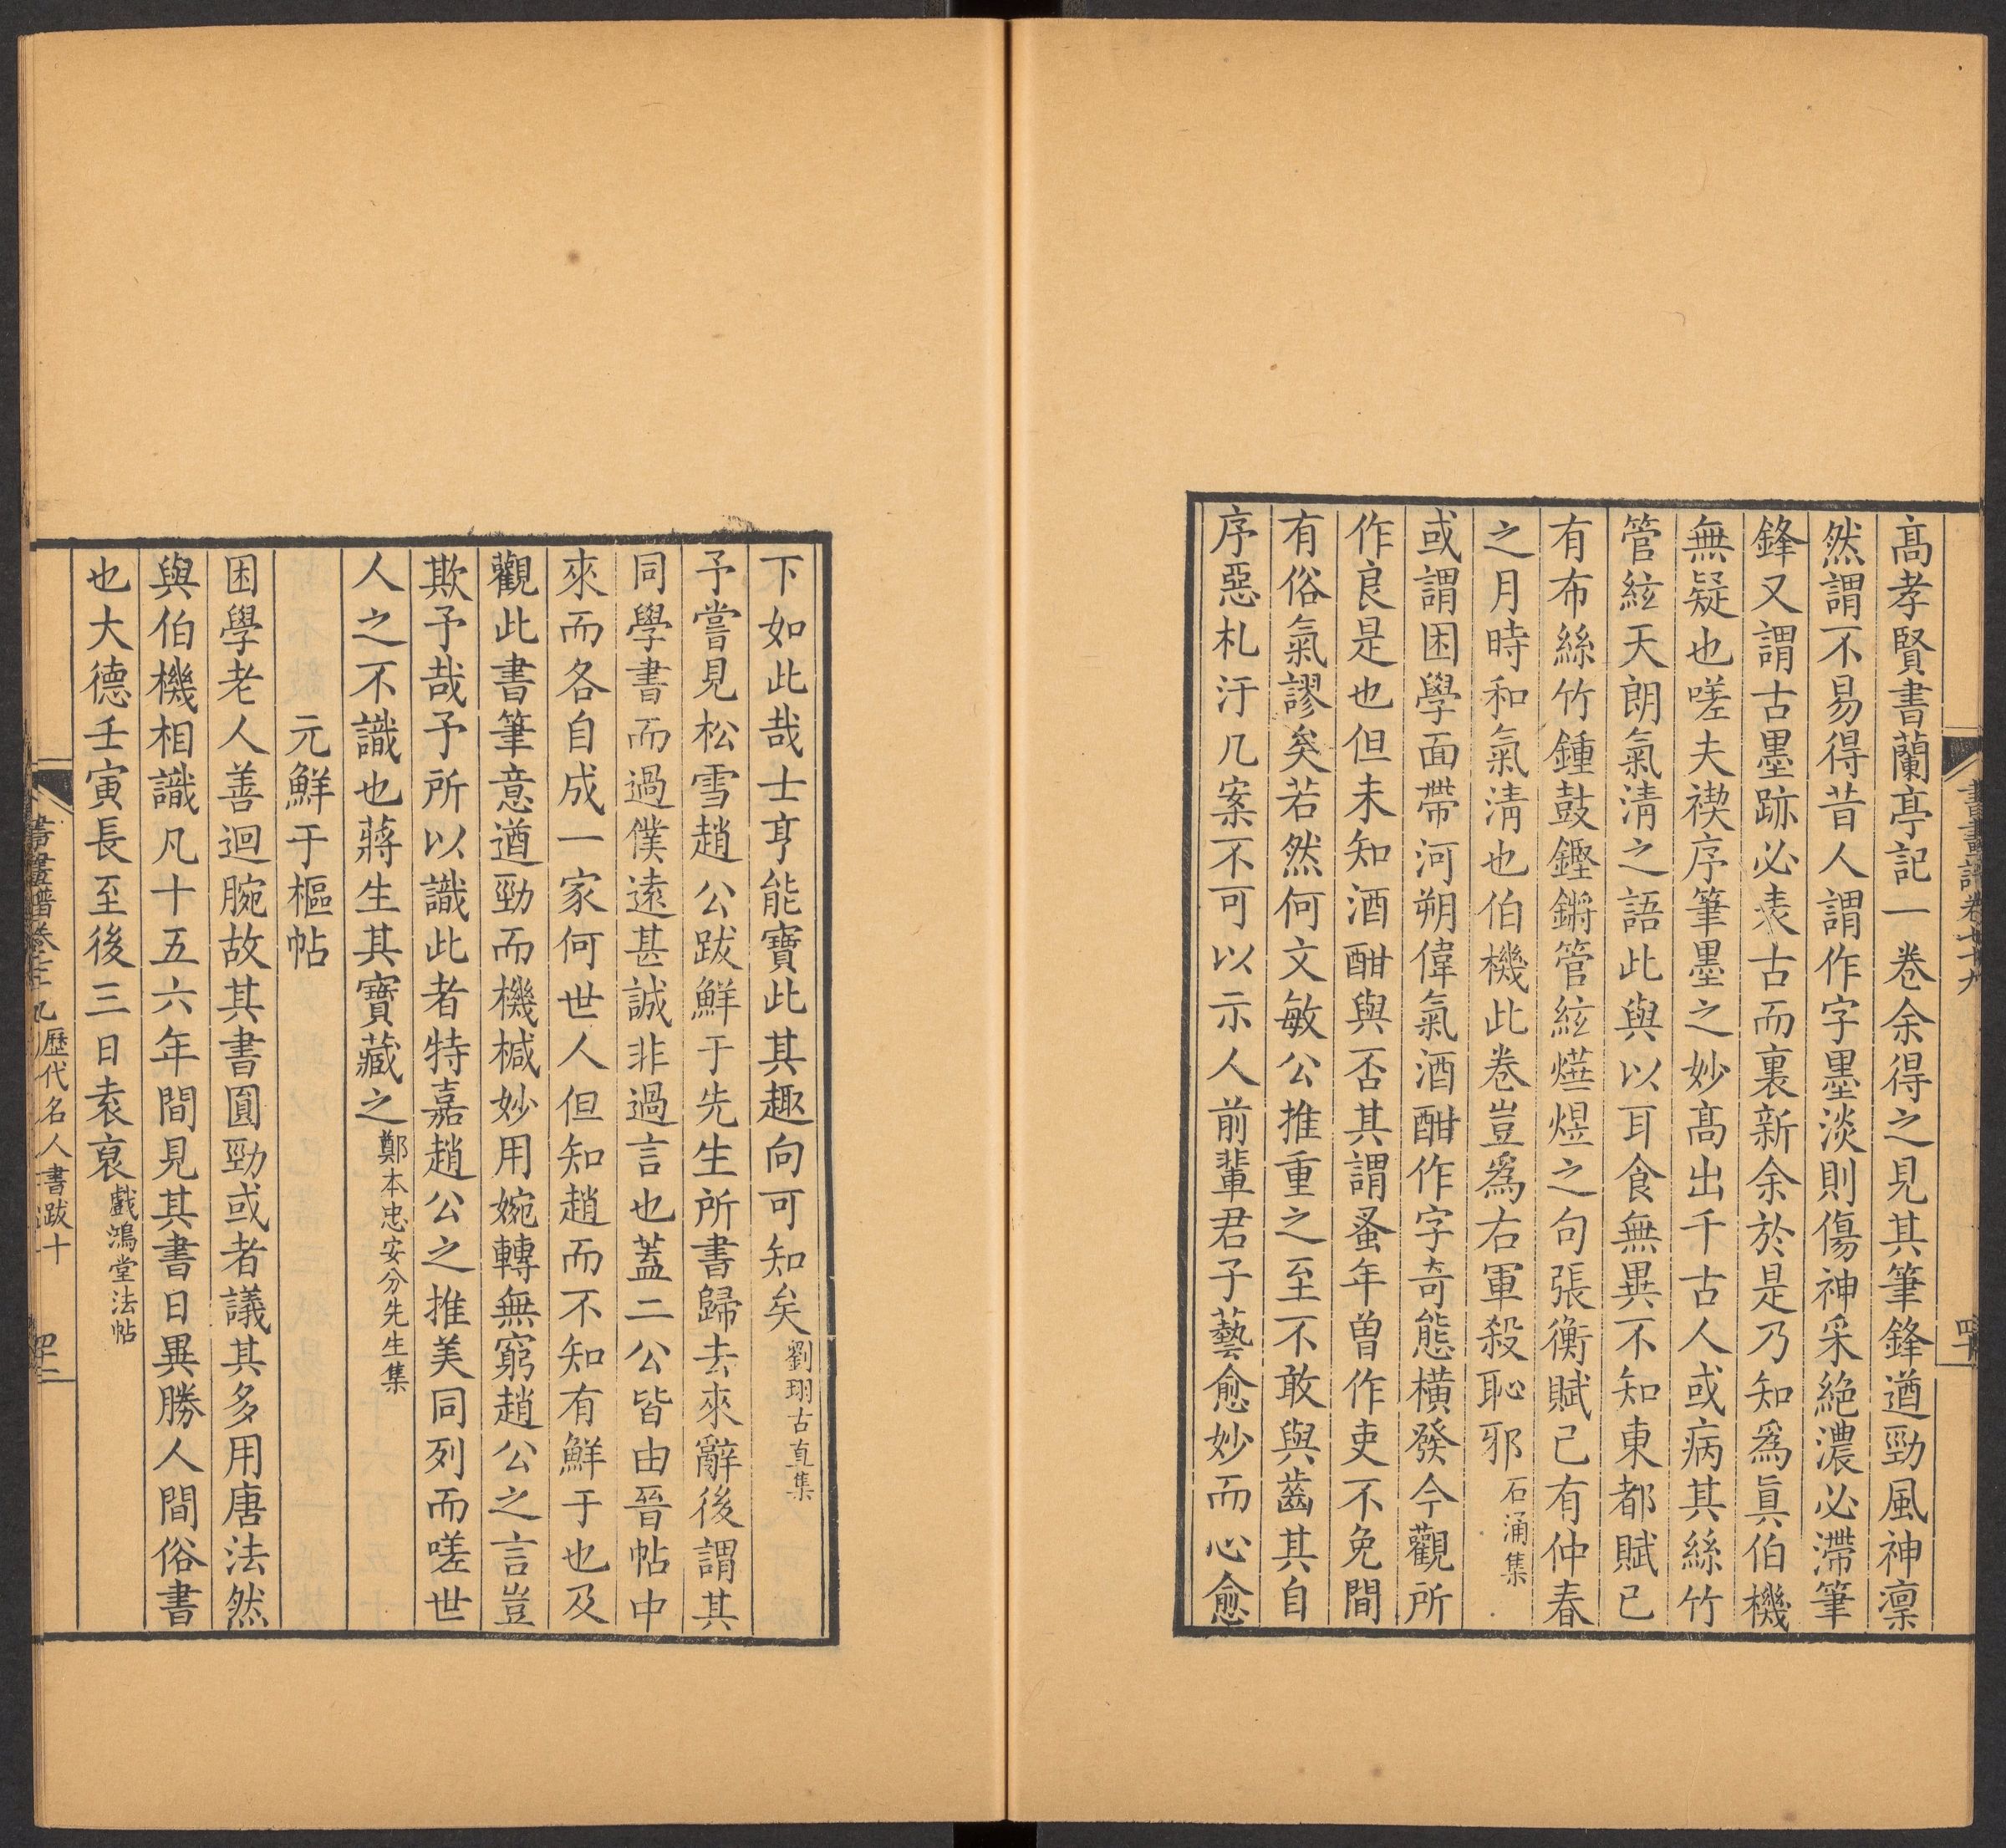 書畫譜卷七十九
四十
高孝賢書蘭亭記一卷余得之見其筆鋒遒勁風神凛
然謂不易得昔人謂作字墨淡則傷神采絶濃必滯筆
鋒又謂古墨跡必表古而裏新余於是乃知爲眞伯機
無疑也嗟夫禊序筆墨之妙髙出千古人或病其絲竹
管絃天朗氣淸之語此與以耳食無異不知東都賦已
有布絲竹鍾鼓鏗鏘管絃燁煜之句張衡賦已有仲春
之月時和氣淸也伯機此卷豈爲右軍殺恥邪石涌集
或謂困學面帶河朔偉氣酒酣作字奇態橫發今觀所
作良是也但未知酒酣與否其謂蚤年曾作吏不免間
有俗氣謬矣若然何文敏公推重之至不敢與齒其自
序惡札汙几案不可以示人前輩君子藝愈妙而心愈
下如此哉士亨能寶此其趣向可知矣劉珝古直集
予嘗見松雪趙公跋鮮于先生所書歸去來辭後謂其
同學書而過僕遠甚誠非過言也蓋二公皆由晉帖中
來而各自成一家何世人但知趙而不知有鮮于也及
觀此書筆意遒勁而機槭妙用婉轉無窮趙公之言豈
欺予哉予所以識此者特嘉趙公之推美同列而嗟世
人之不識也蔣生其寶藏之鄭本忠安分先生集
元鮮于樞帖
困學老人善迴腕故其書圓勁或者議其多用唐法然
與伯機相識凡十五六年間見其書日異勝人間俗書
也大德壬寅長至後三日袁裒戲鴻堂法帖
書畫譜卷七十九 歷代名人書跋十